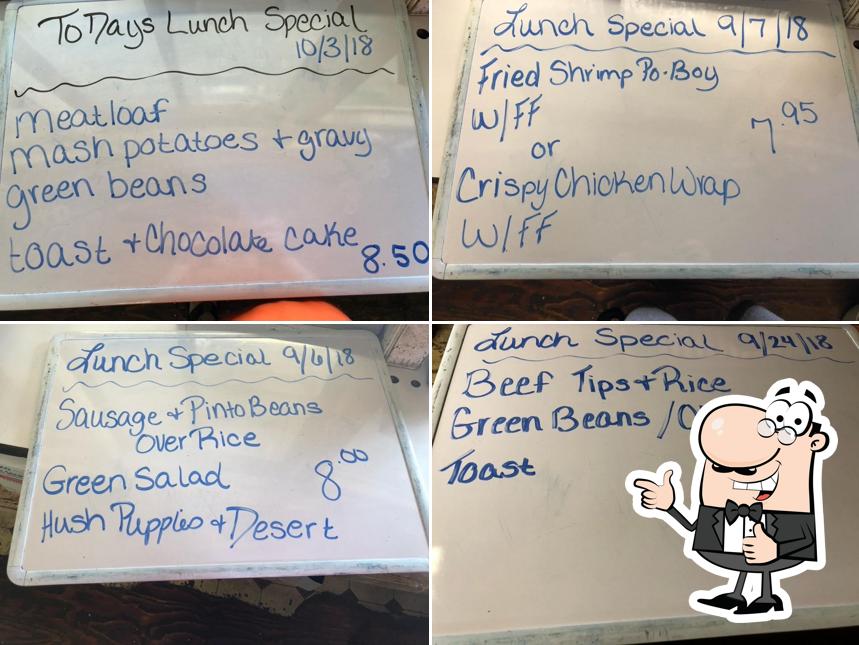 ToDays Lunch Special
10/3/18
meatloaf
mash potatoes + gravy
green beans
toast + Chocolate cake
8.50
Lunch Special 9/7/18
Fried Shrimp Po-Boy
W/FF
7.95
or
Crispy Chicken Wrap
W/FF
Lunch Special 9/6/18
Sausage + Pinto Beans
Over Rice
Green Salad
8.00
Hush Puppies + Desert
Lunch Special 9/24/18
Beef Tips + Rice
Green Beans /
Toast